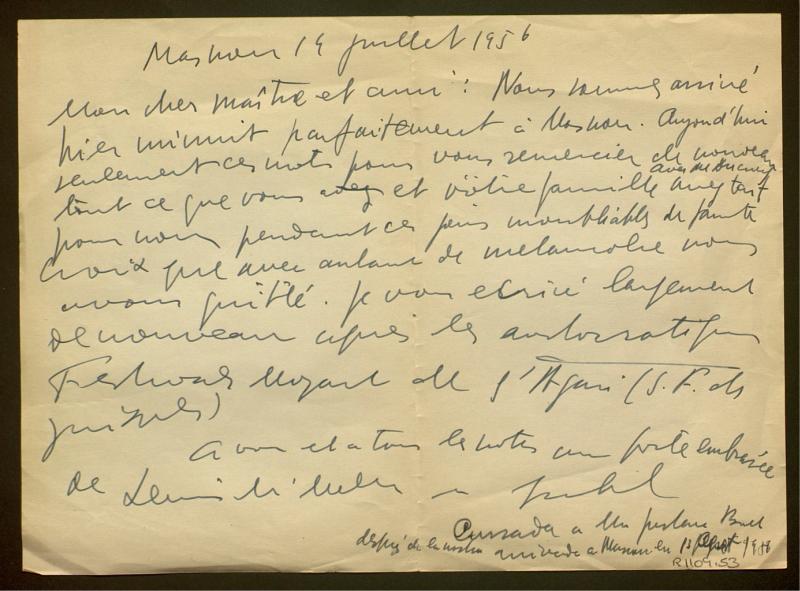 Masnou 14 juillet 1956
Mon cher maître et ami: Nous sommes arrivé
hier minuit parfaitement à Masnou. Aujourd'hui
seulement ces mots pour vous remercier de nouveau
tout ce que vous avez et vôtre famille avez fait
pour nous pendant ces jours inoubliables de Sainte
Croix que avec autant de melancolie nous
avons quitté. Je vous ecriré largement
de nouveau après les
Festivals Mozart de l'Agau (S. F. de
A vous et a tous les notres une forte embrasée
de
Cursada a
després de la nostra arrivada a Masnou en 13 1956
R.1104.53